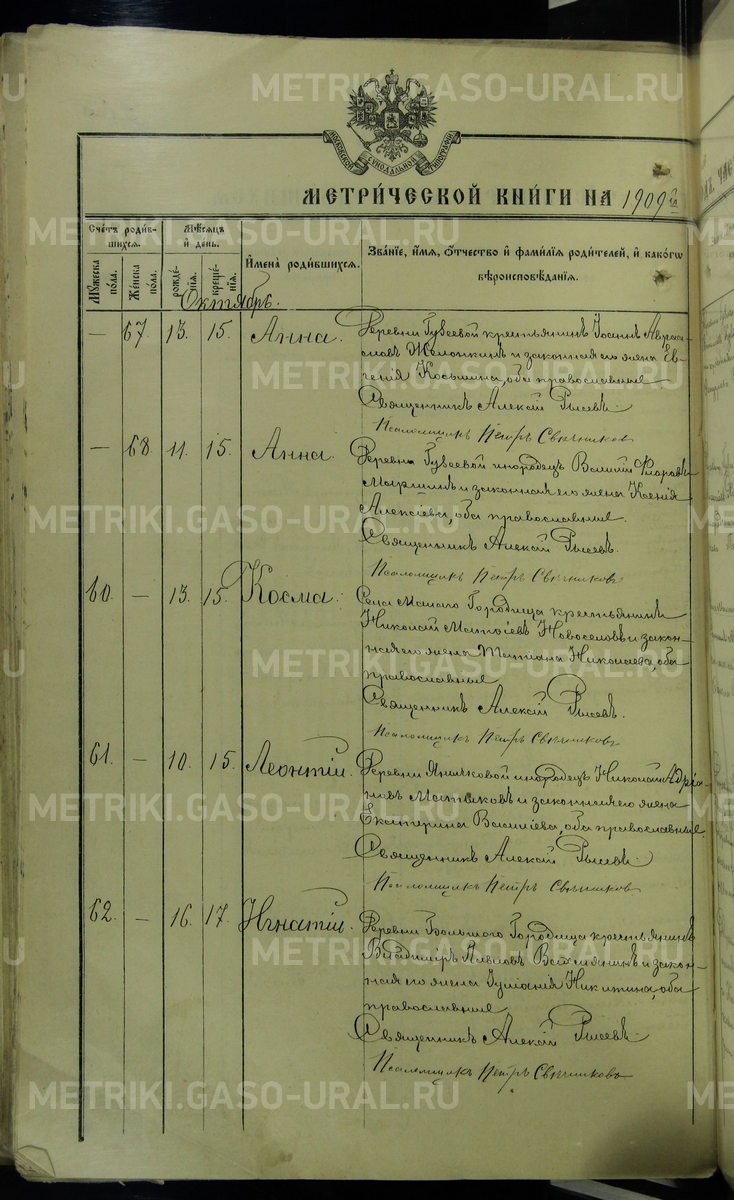 METRIKI.GASO-URAL.RU
МОСКОВСКОЙ СѴНОДАЛЬНОЙ ТИПОГРАФІИ
МЕТРИ́ЧЕСКОЙ КНИ́ГИ НА 1909
Сче́тъ роди́вшихся.
Му́жеска по́ла.
Же́нска по́ла.
Мѣ́сяцъ и҆ де́нь.
рожде́нія.
креще́нія.
И҆мена̀ роди́вшихся.
Зва́ніе, и҆́мя, ѻ҆́тчество и҆ фами́лія роди́телей, и҆ како́гѡ
вѣроисповѣ́данія.
Октябрь.
— 67. 13. 15. Анна. Деревни Гуссевой крестьянинъ Іоаннъ
и законная его жена Ев-
генія Косьмина, оба православные
Священникъ Алексій
Псаломщикъ Петръ Свѣчников
— 68. 11. 15. Анна. Деревни Гуссевой инородецъ Василій Флоровъ
и законная его жена Ксенія
Алексіева, оба православные.
Священникъ Алексій
Псаломщикъ Петръ Свѣчников
60. — 13. 15. Косма. Села Малаго Городища крестьянинъ
Николай Матѳіевъ Новоселовъ и закон-
ная его жена Татіана Николаева, оба
православные
Священникъ Алексій
Псаломщикъ Петръ Свѣчников
61. — 10. 15. Леонтій. Деревни инородецъ Николай Адріа-
новъ и законная его жена
Екатерина Василіева, оба православные.
Священникъ Алексій
Псаломщикъ Петръ Свѣчников
62. — 16. 17. Игнатій. Деревни Большого Городища крестьянинъ
Владиміръ Павловъ и закон-
ная его жена Никитина, оба
православные
Священникъ Алексій
Псаломщикъ Петръ Свѣчников